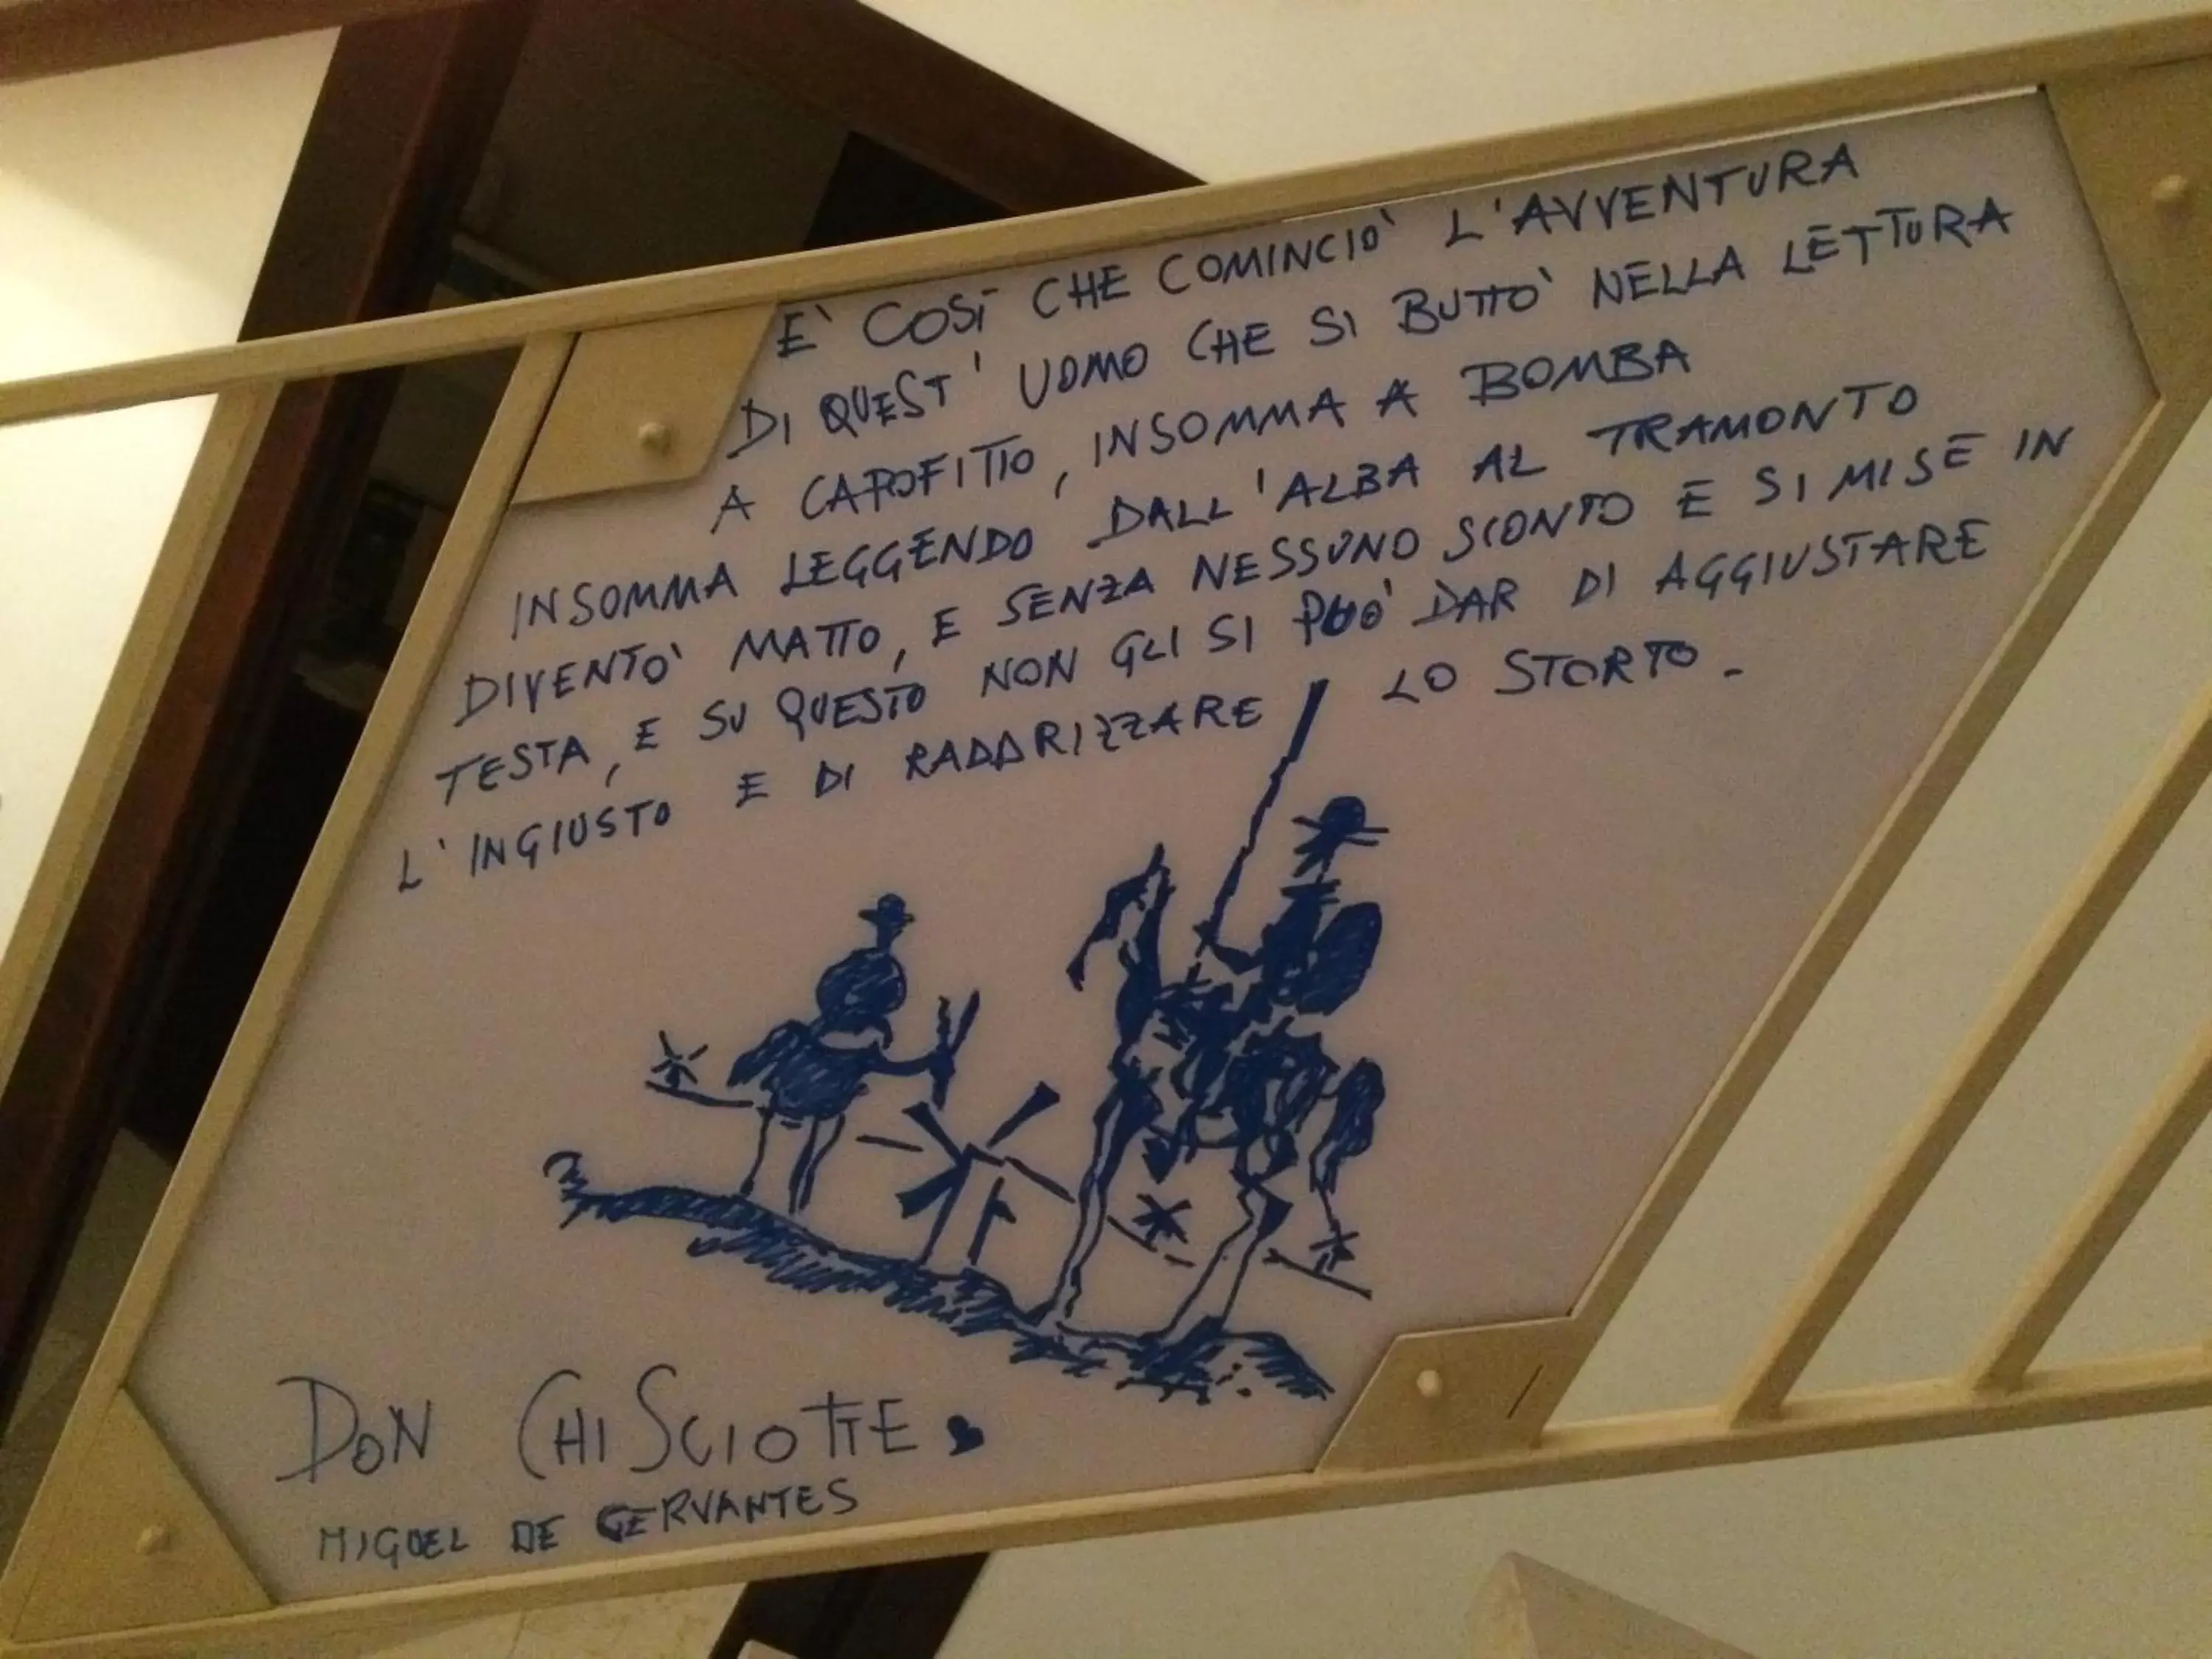 E' COSÌ CHE COMINCIO' L'AVVENTURA
DI QUEST' UOMO CHE SI BUTTO' NELLA LETTURA
A CAPOFITTO, INSOMMA A BOMBA
INSOMMA LEGGENDO DALL'ALBA AL TRAMONTO
DIVENTO' MATTO, E SENZA NESSUNO SCONTO E SI MISE IN
TESTA, E SU QUESTO NON GLI SI PUO' DAR DI AGGIUSTARE
L'INGIUSTO E DI RADDRIZZARE LO STORTO.
DON CHISCIOTTE
MIGUEL DE CERVANTES